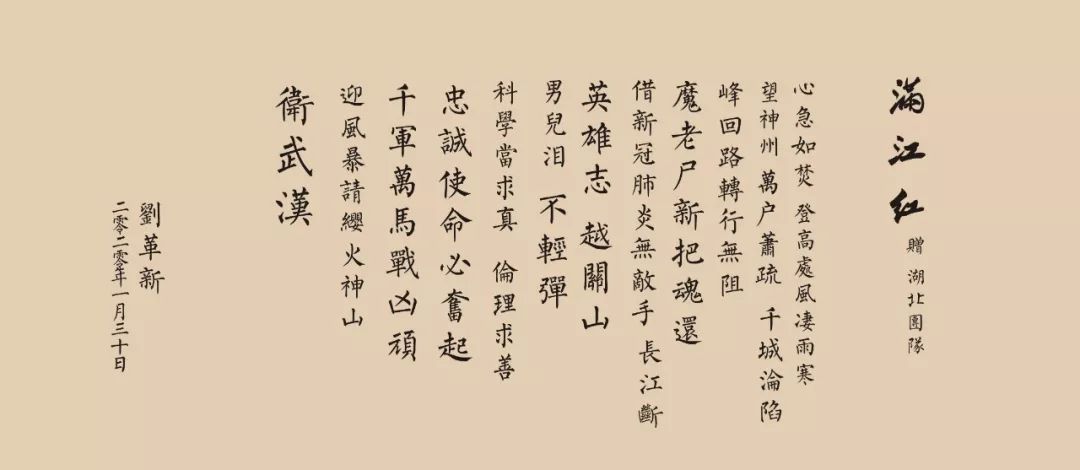 滿江紅
贈 湖北團隊
心急如焚 登高處風凄雨寒
望神州 萬户蕭疏 千城淪陷
峰回路轉行無阻
魔老尸新把魂還
借新冠肺炎無敵手 長江斷
英雄志 越關山
男兒泪 不輕彈
科學當求真 倫理求善
忠誠使命必奮起
千軍萬馬戰凶頑
迎風暴請纓 火神山
衛武漢
劉革新
二零二零年一月三十日